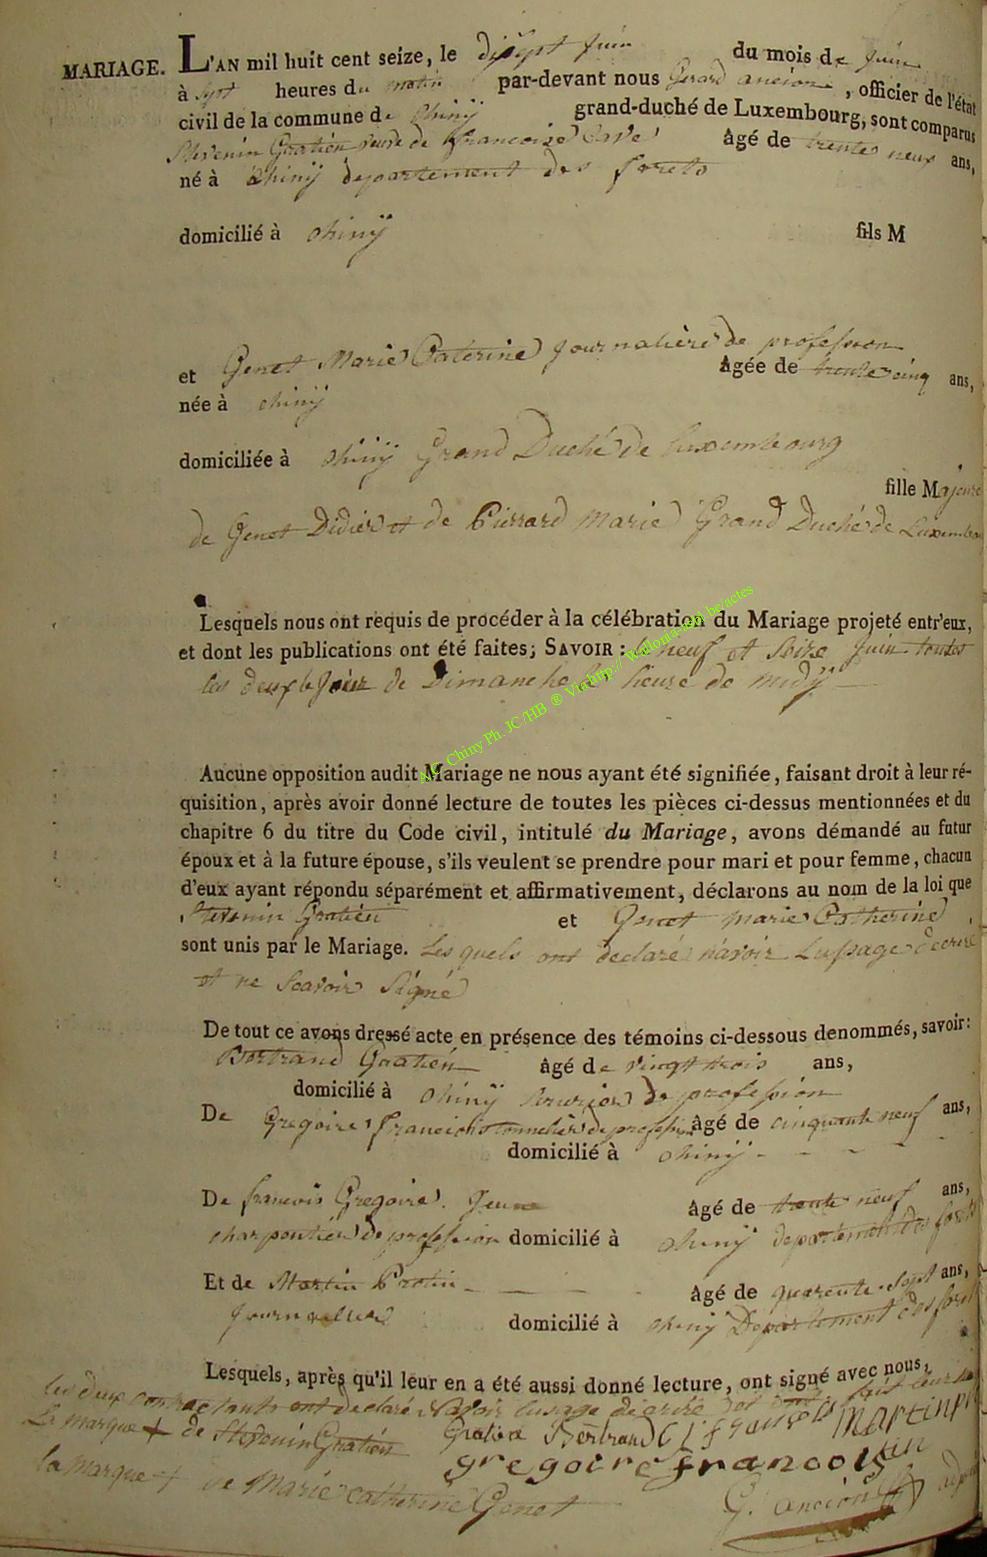 MARIAGE. L'AN mil huit cent seize, le dixsept juin du mois de juin
à sept heures du matin par-devant nous Gerard ancion, officier de l'état
civil de la commune de Chinÿ grand-duché de Luxembourg, sont comparus
Stevenin Gratien veuf de francoise âgé de trente neuf ans,
né à Chinÿ departement des forets
domicilié à Chinÿ fils M
et Genet Marie Caterine journaliere de profession âgée de trente cinq ans,
née à chinÿ
domiciliée à Chinÿ Grand Duché de Luxembourg
fille Majeure
de Genet Didier et de Pierrard Marie Grand Duché de Luxembourg
Lesquels nous ont requis de procéder à la célébration du Mariage projeté entr'eux,
et dont les publications ont été faites; SAVOIR : le neuf et seize juin toutes
les deux le jour de Dimanche à l'heure de midÿ
AC Chiny Ph. JC/HB ® Via http:// Wallonia-asbl.be/actes
Aucune opposition audit Mariage ne nous ayant été signifiée, faisant droit à leur ré-
quisition, après avoir donné lecture de toutes les pièces ci-dessus mentionnées et du
chapitre 6 du titre du Code civil, intitulé du Mariage, avons démandé au futur
époux et à la future épouse, s'ils veulent se prendre pour mari et pour femme, chacun
d'eux ayant répondu séparément et affirmativement, déclarons au nom de la loi que
Stevenin Gratien et Genet marie Catherine,
sont unis par le Mariage. Lesquels ont declaré n'avoir L'ussage d'ecrire
et ne scavoir signé
De tout ce avons dressé acte en présence des témoins ci-dessous denommés, savoir:
Bertrand Gratien âgé de vingt trois ans,
domicilié à Chinÿ de profession
De Gregoire francois tonnelier de profession âgé de cinquante neuf ans,
domicilié à chinÿ
De francois Gregoire Jeune âgé de trente neuf ans,
charpentier de profession domicilié à Chinÿ departement des forets
Et de Martin Protin âgé de quarente sept ans,
journallier domicilié à chinÿ Departement des forets
Lesquels, après qu'il leur en a été aussi donné lecture, ont signé avec nous,
les deux contractants ont declaré n'avoir l'usage d'ecrire
La marque + de Stevenin Gratien Gratien Bertrand MARTIN
gregoire francois
la marque + de Marie Catherine Genet G. ancion